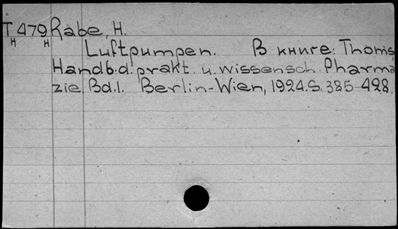 T 479 Rabe, H.
н н
Luftpumpen. В книге: Thoms
Handb.d. prakt. u. wissensch. Pharma
zie Bd.1. Berlin-Wien, 1924.S. 385-428.